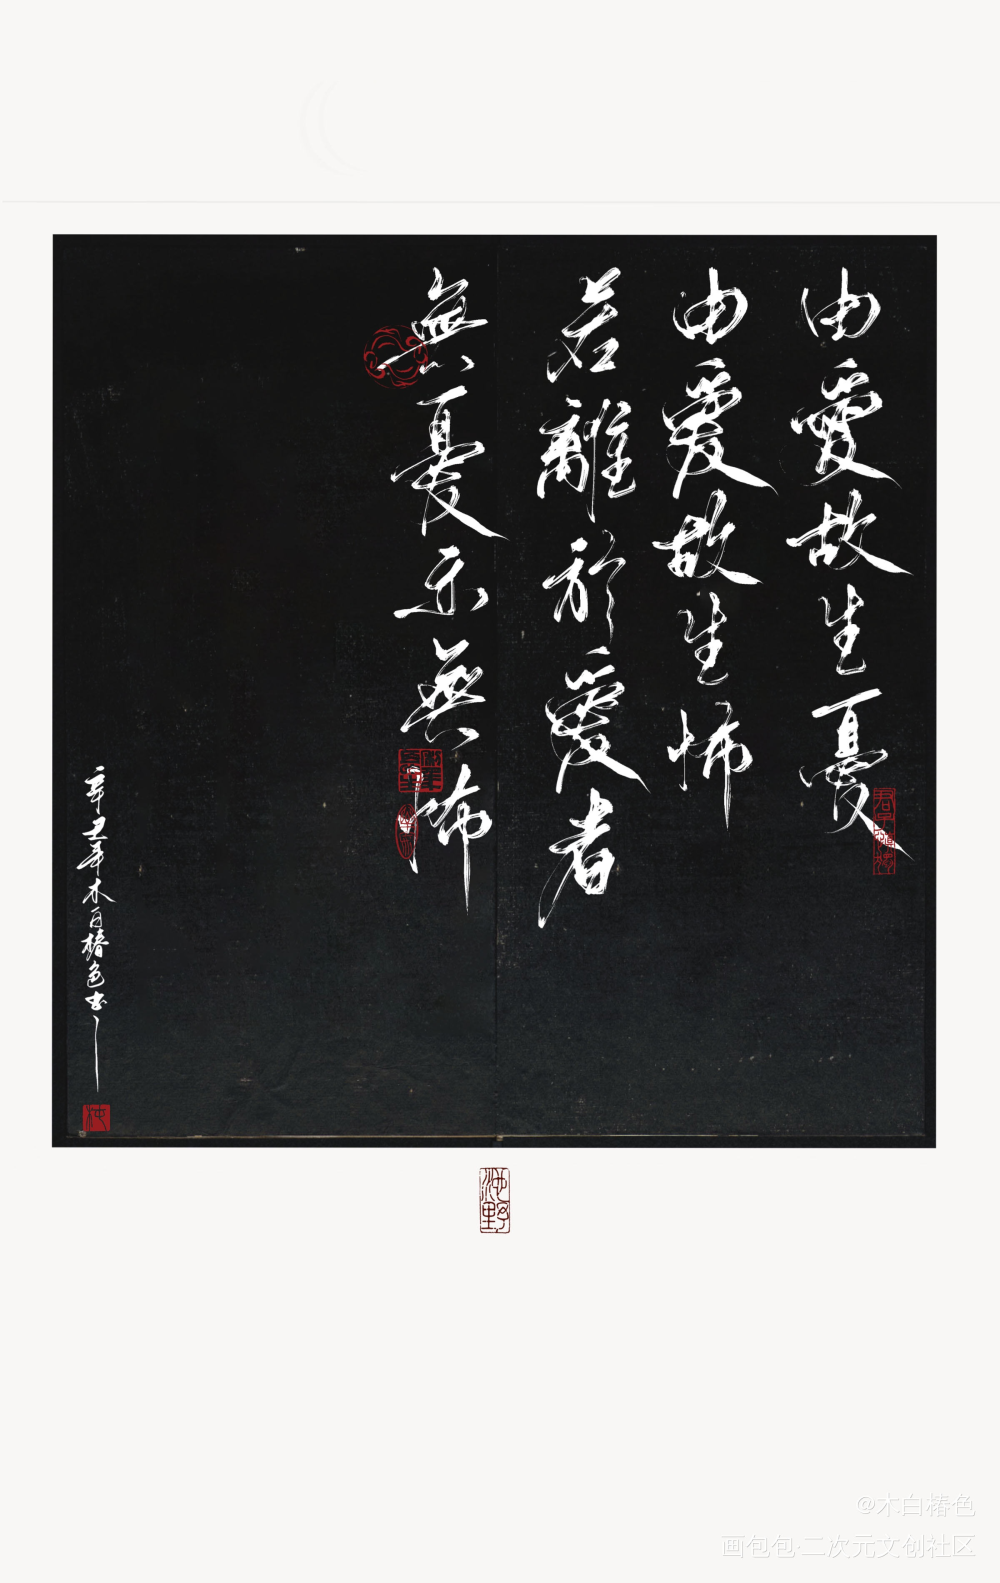 由愛故生憂
由愛故生怖
若離於愛者
無憂亦無怖
辛丑年木白椿色书
海野
@木白椿色
画包包·二次元文创社区